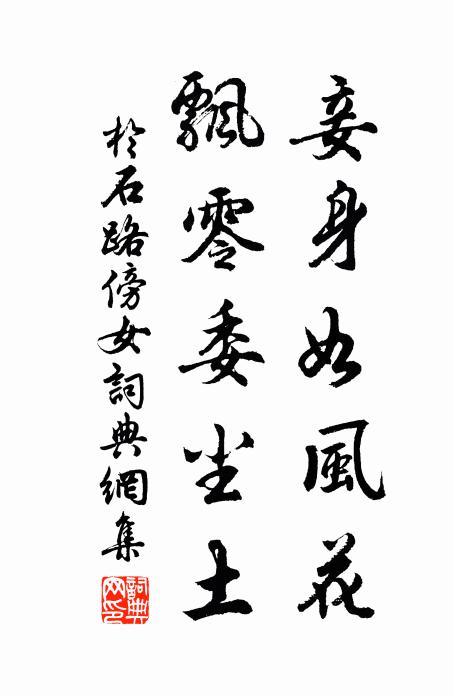 妾身如風花
飄零委尘土
於石路傍女詞典網集
詞典网印